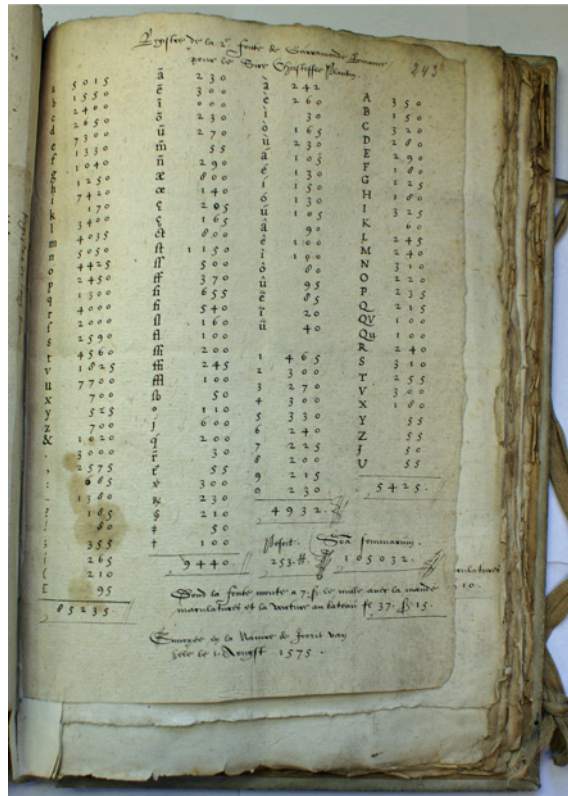 Regstre de la 2e fonte de Garramonde Romaine
pour le Sire Christoffle Plantin.
243
a 5015
b 1550
c 2400
d 2650
e 7300
f 1330
g 1040
h 1250
i 7420
k 170
l 3400
m 4035
n 5050
o 4425
p 2450
q 1300
r 4000
f 2000
s 2590
t 4560
v 1825
u 7700
x 700
y 525
z 700
& 1020
.
, 2575
: 685
- 1380
? 185
! 80
; 355
265
( 210
[ 95
85235.
ā 230
ē 300
ī
ō 230
ū 270
m̄ 55
n̄ 290
æ 800
œ 140
ę 205
ç 165
ct 800
ſt 1150
ſſ 500
ff 370
ſi 655
fi 540
ſl 160
fl 100
ſſi 200
ffi 245
ffl 100
ſb 50
110
600
q̄ 200
r̄ 30
55
300
& 230
§ 210
‡ 50
† 100
9440.
à 242
è 260
ì 30
ò 165
ù 230
á 103
é 130
í 150
ó 130
ú 105
â 90
ê 100
î 190
ô 80
û 95
ë 85
ï 20
ü 40
1 465
2 300
3 270
4 300
5 330
6 240
7 225
8 200
9 215
0 230
4932.
A 350
B 150
C 320
D 280
E 290
F 180
G 125
H 180
I 325
K 60
L 245
M 240
N 310
O 220
P 235
Q 215
QV 100
Qu 100
R 240
S 310
T 255
V 300
X 180
Y 55
Z 55
J 50
U 55
5425.
Poisent. Somme
253. ℔ 105032.
Dond la fonte monte a 7. le mille avec la mande
marulatures et la voiture au bateau fl 37. 15.
Envoyée en la Navire de Jerrit van
le 1. Aougst 1575.